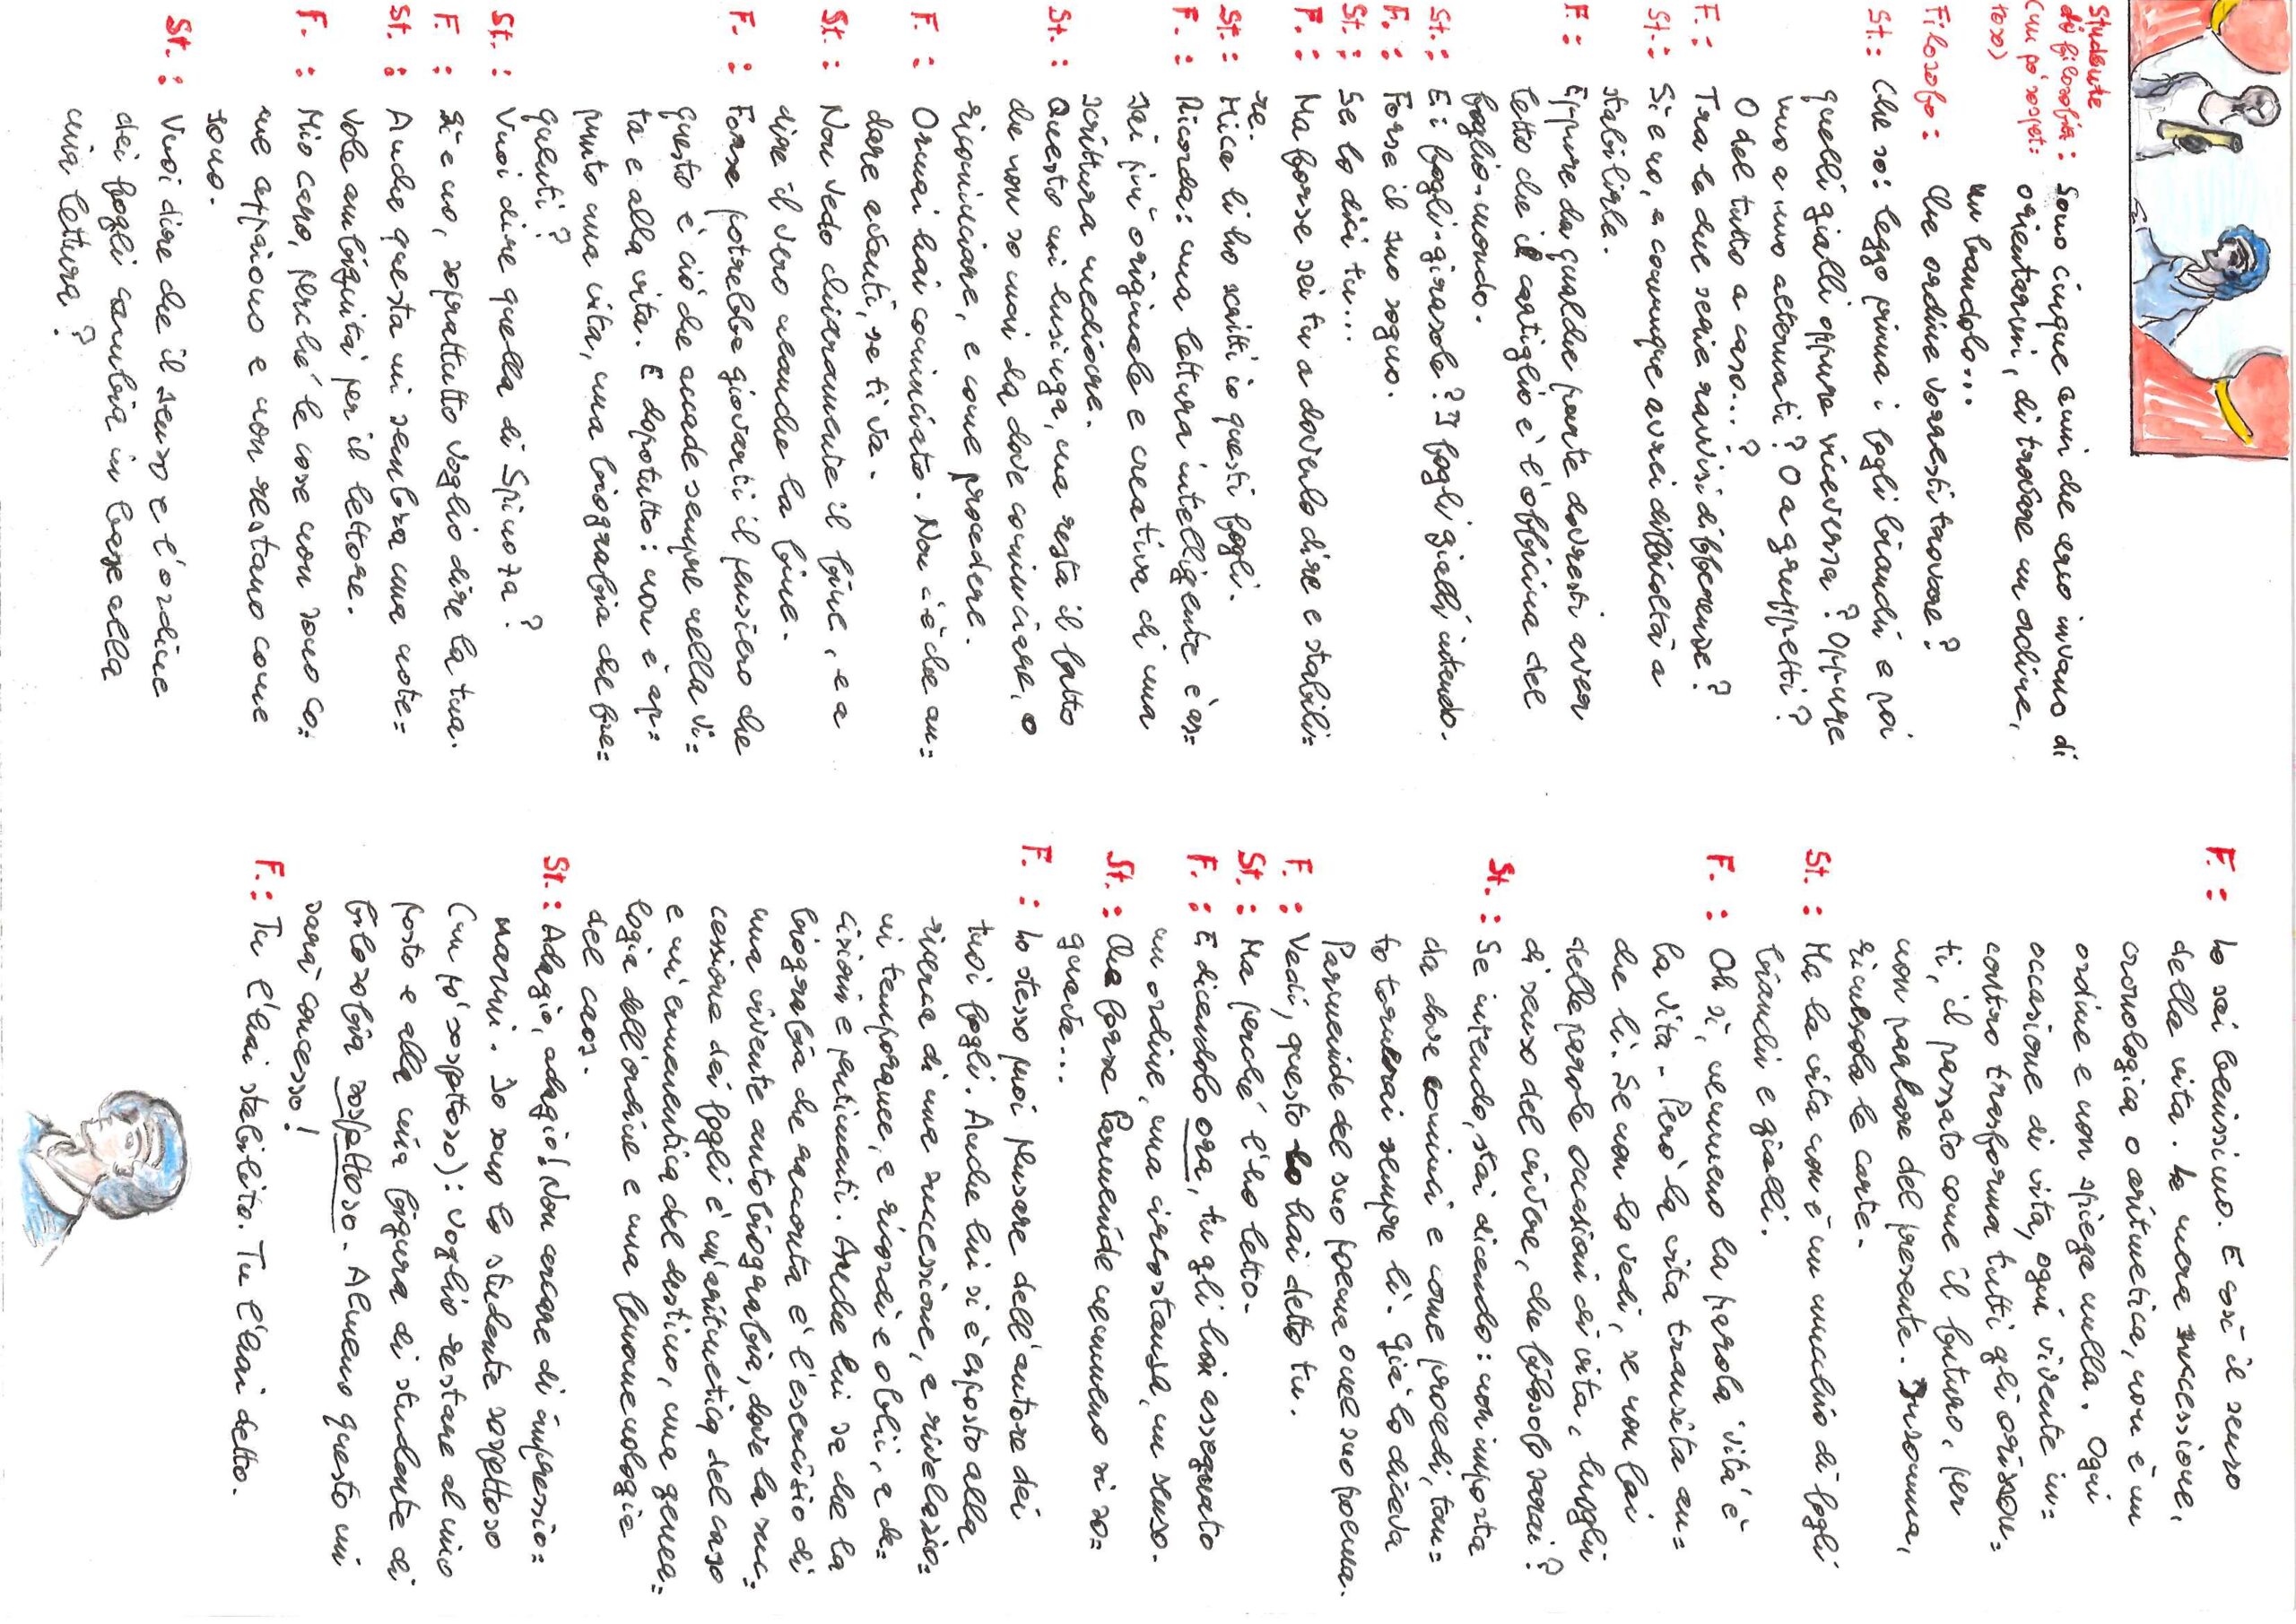 Studente
di filosofia: Sono cinque anni che cerco invano di
(un po' sospet= orientarmi, di trovare un ordine,
toso) un bandolo...
Filosofo: Che ordine vorresti trovare?
St.: Che so: leggo prima i fogli bianchi e poi
quelli gialli oppure viceversa? Oppure
uno a uno alternati? O a gruppetti?
O del tutto a caso...?
F.: Tra le due serie ravvisi differenze?
St.: Sì e no, e comunque avrei difficoltà a
stabilirle.
F.: Eppure da qualche parte dovresti aver
letto che il cartiglio è l'officina del
foglio-mondo.
St.: E i fogli-girasole? I fogli gialli intendo.
F.: Forse il suo sogno.
St.: Se lo dici tu...
F.: Ma forse sei tu a doverlo dire e stabili=
re.
St.: Mica li ho scritti io questi fogli.
F.: Ricorda: una lettura intelligente è as=
sai più originale e creativa di una
scrittura mediocre.
St.: Questo mi lusinga, ma resta il fatto
che non so mai da dove cominciare, o
ricominciare, e come procedere.
F.: Ormai hai cominciato. Non c'è che an=
dare avanti, se ti va.
St.: Non vedo chiaramente il fine, e a
dire il vero neanche la fine.
F.: Forse potrebbe giovarti il pensiero che
questo è ciò che accade sempre nella vi=
ta e alla vita. E dopotutto: non è ap=
punto una vita, una biografia che fre=
quenti?
St.: Vuoi dire quella di Spinoza?
F.: Sì e no, soprattutto voglio dire la tua.
St.: Anche questa mi sembra una note=
vole ambiguità per il lettore.
F.: Mio caro, perché le cose non sono co=
me appaiono e non restano come
sono.
St.: Vuoi dire che il senso e l'ordine
dei fogli cambia in base alla
mia lettura?
F.: Lo sai benissimo. E così il senso
della vita. La mera successione,
cronologica o aritmetica, non è un
ordine e non spiega nulla. Ogni
occasione di vita, ogni vivente in=
contro trasforma tutti gli orizzon=
ti, il passato come il futuro, per
non parlare del presente. Insomma,
rimescola le carte.
St.: Ma la vita non è un mucchio di fogli
bianchi e gialli.
F.: Oh sì, nemmeno la parola 'vita' è
la vita - Però la vita transita an=
che lì. Se non lo vedi, se non fai
delle parole occasioni di vita, luoghi
di senso del vivere, che filosofo sarai?
St.: Se intendo, stai dicendo: non importa
da dove cominci e come procedi, tan=
to tornerai sempre lì. Già lo diceva
Parmenide del suo poema o nel suo poema.
F.: Vedi, questo lo hai detto tu.
St.: Ma perché l'ho letto.
F.: E dicendolo ora, tu gli hai assegnato
un ordine, una circostanza, un senso.
St.: Che forse Parmenide nemmeno si so=
gnava...
F.: Lo stesso puoi pensare dell'autore dei
tuoi fogli. Anche lui si è esposto alla
ricerca di una successione, a rivelazio=
ni temporanee, a ricordi e oblii, a de=
cisioni e pentimenti. Anche lui sa che la
biografia che racconta è l'esercizio di
una vivente autobiografia, dove la suc=
cessione dei fogli è un'aritmetica del caso
e un'ermeneutica del destino, una genea=
logia dell'ordine e una fenomenologia
del caos.
St.: Adagio, adagio! Non cercare di impressio=
narmi. Io sono lo studente sospettoso
(un po' sospettoso): voglio restare al mio
posto e alla mia figura di studente di
filosofia sospettoso. Almeno questo mi
sarà concesso!
F.: Tu l'hai stabilito. Tu l'hai detto.